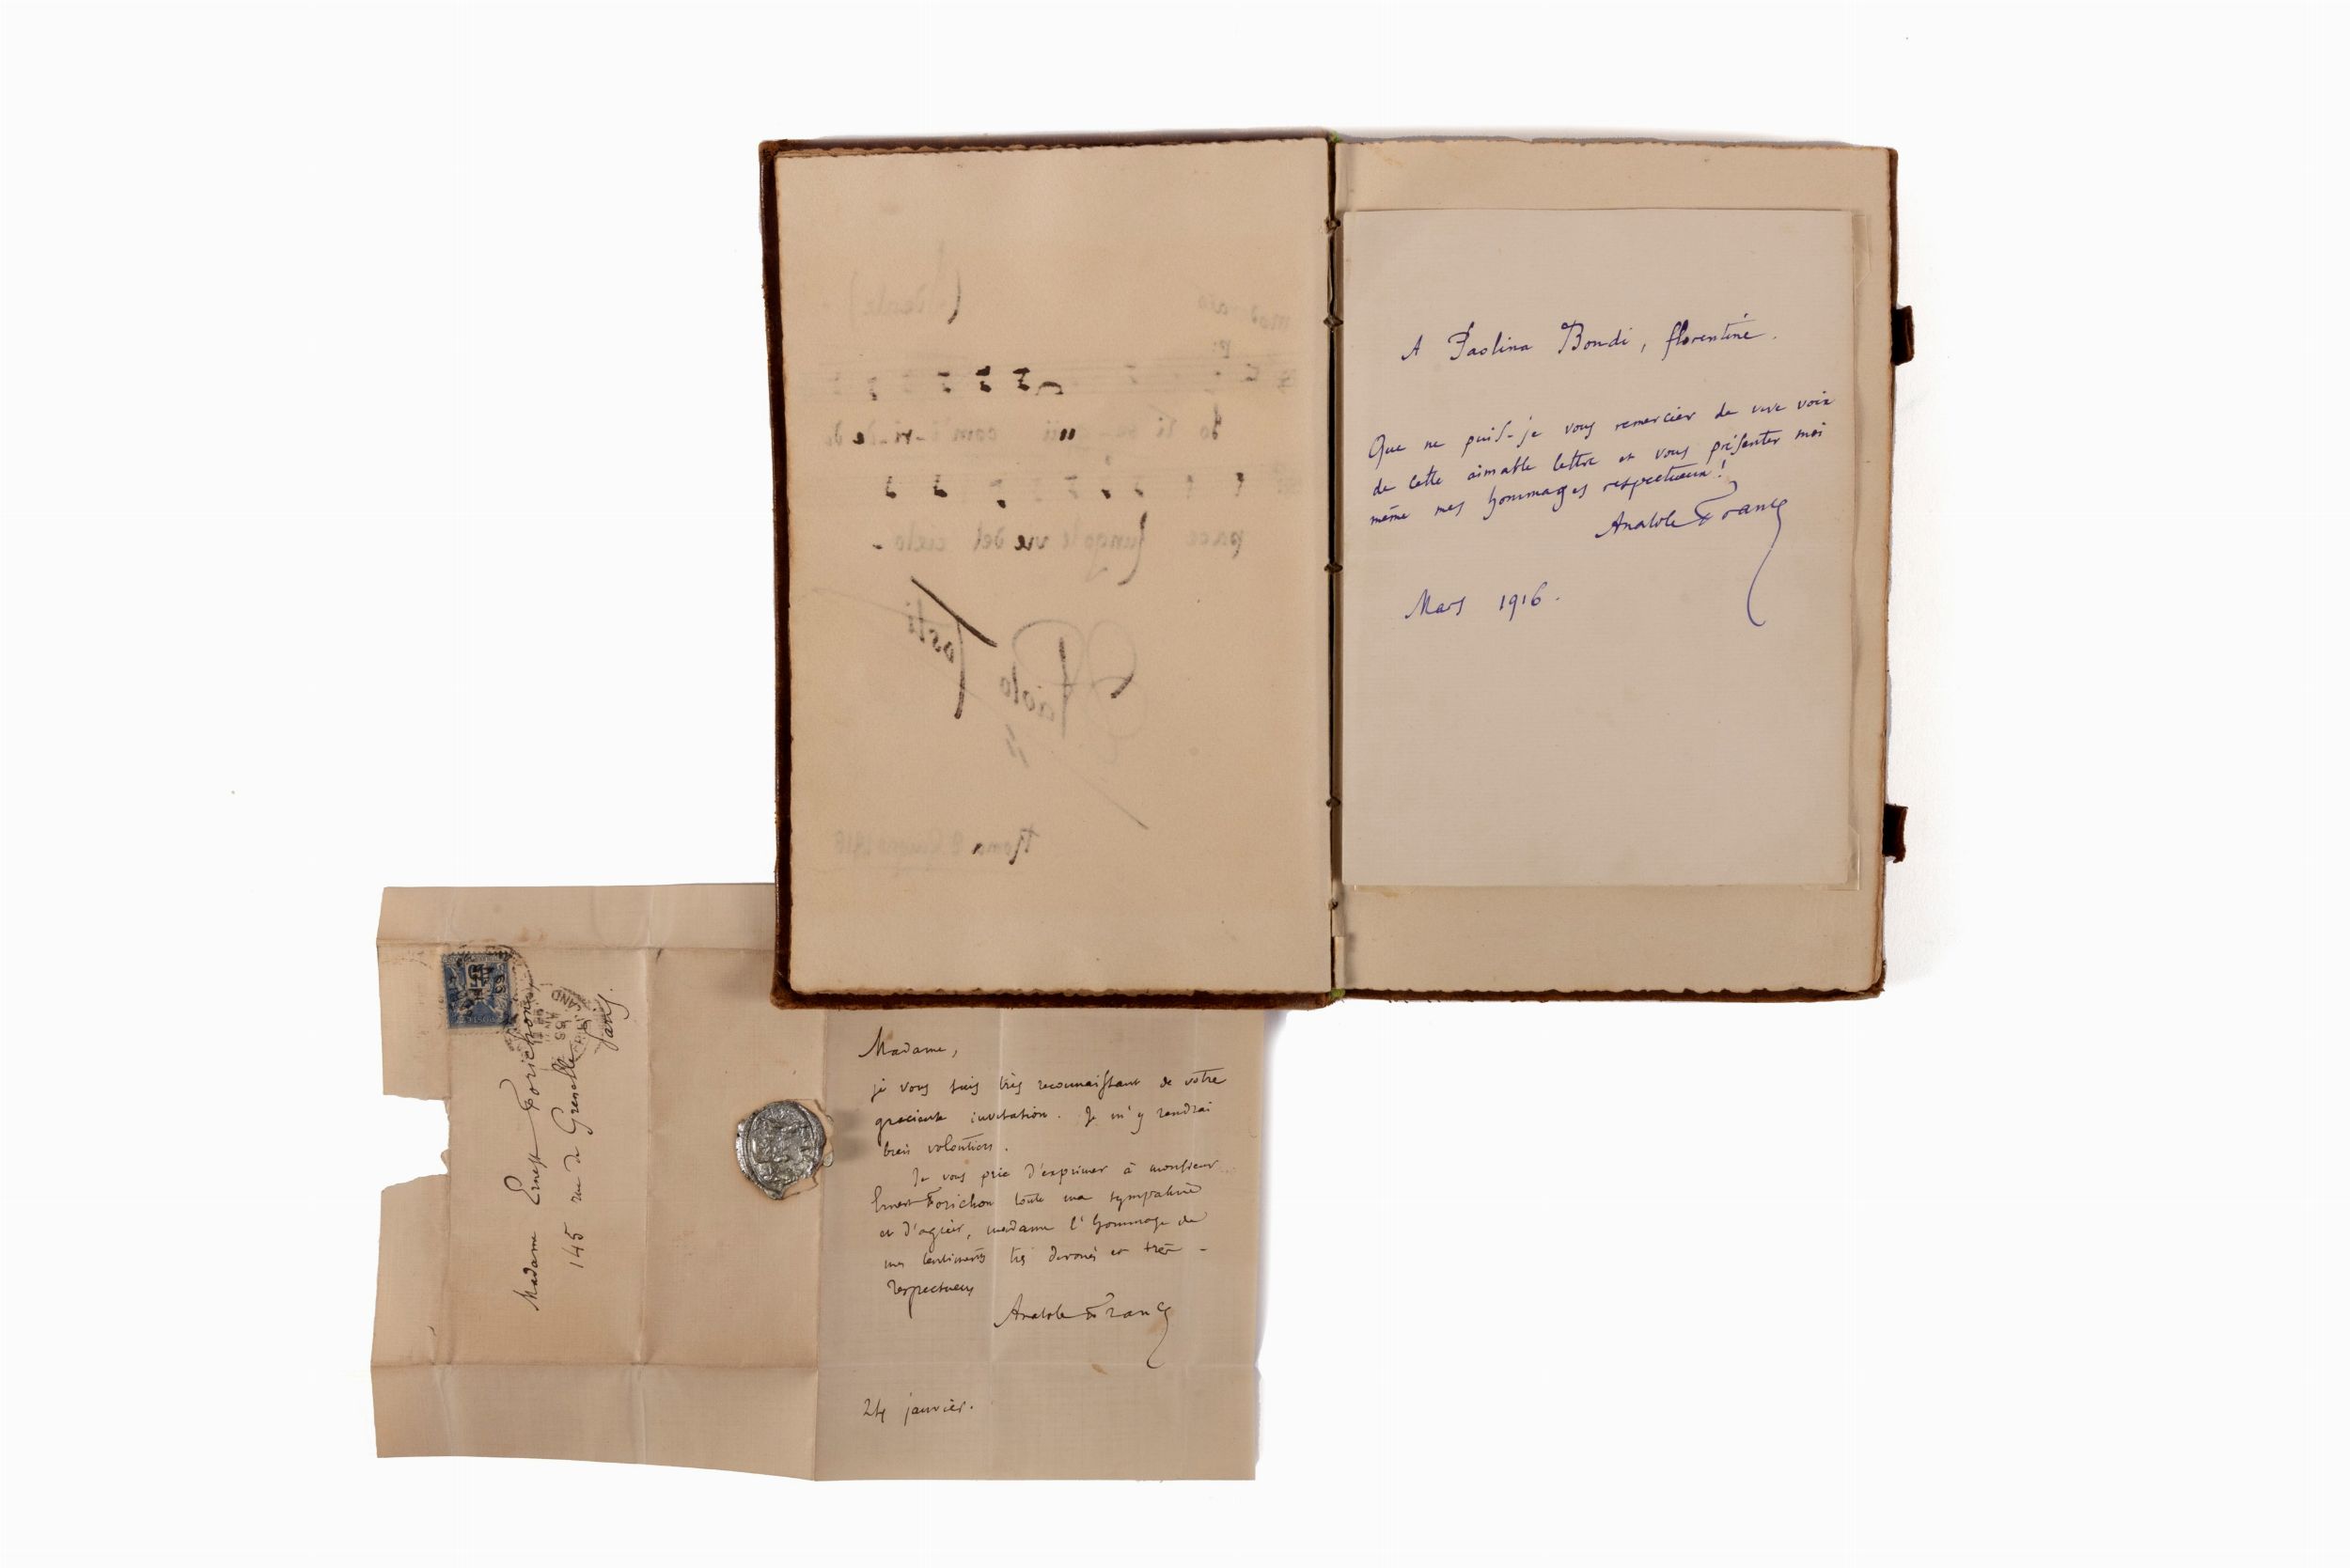 A Paolina Bondi, florentine.
Que ne puis-je vous remercier de vive voix
de cette aimable lettre et vous présenter moi
même mes hommages respectueux!
Anatole France
Mars 1916.
moderato
Io ti seguii com'iride di
pace lungo le vie del cielo
F Paolo
Tosti
Roma 1916
Madame Ernest Forichon
145 rue de Grenelle
Paris.
Madame,
je vous suis très reconnaissant de votre
gracieuse invitation. Je m'y rendrai
bien volontiers.
Je vous prie d'exprimer à monsieur
Ernest Forichon toute ma sympathie
et d'agréer, madame l'hommage de
mes sentiments très devoués et très
respectueux
Anatole France
24 janvier.